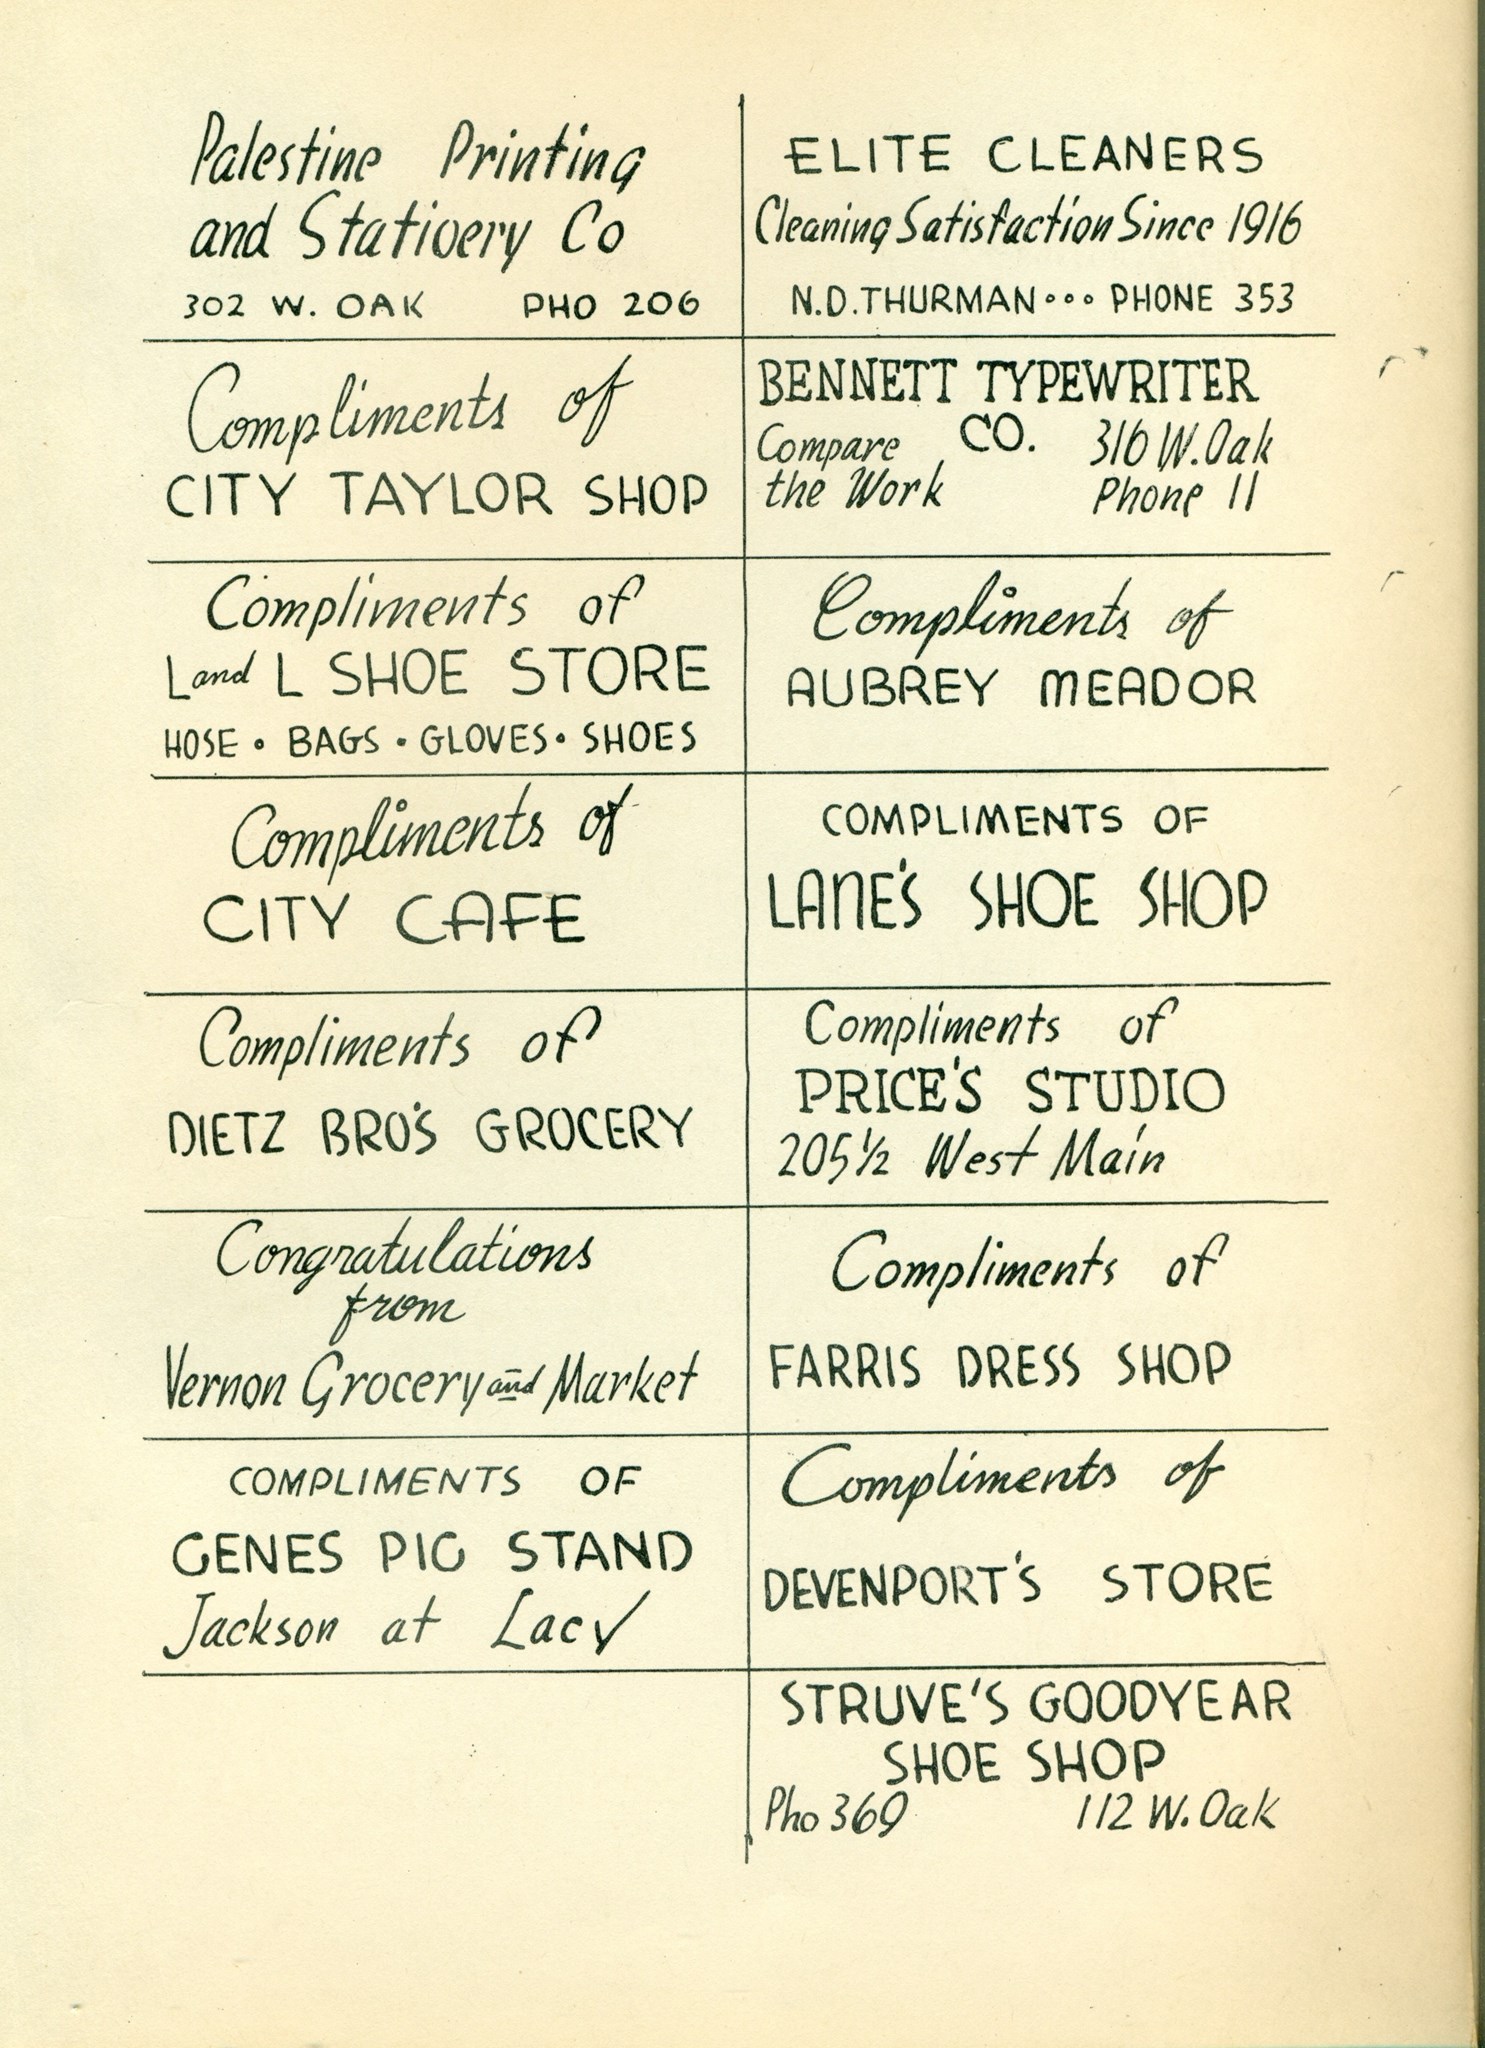 Palestine Printing
and Statioery Co
302 W. OAK PHO 206
ELITE CLEANERS
Cleaning Satisfaction Since 1916
N.D. THURMAN••• PHONE 353
Compliments of
CITY TAYLOR SHOP
BENNETT TYPEWRITER
CO.
Compare
the Work
316 W. Oak
Phone 11
Compliments of
L and L SHOE STORE
HOSE • BAGS • GLOVES • SHOES
Compliments of
AUBREY MEADOR
Compliments of
CITY CAFE
COMPLIMENTS OF
LANE'S SHOE SHOP
Compliments of
DIETZ BRO'S GROCERY
Compliments of
PRICE'S STUDIO
205½ West Main
Congratulations
from
Vernon Grocery and Market
Compliments of
FARRIS DRESS SHOP
COMPLIMENTS OF
GENES PIG STAND
Jackson at Lacy
Compliments of
DEVENPORT'S STORE
STRUVE'S GOODYEAR
SHOE SHOP
Pho 369 112 W. Oak